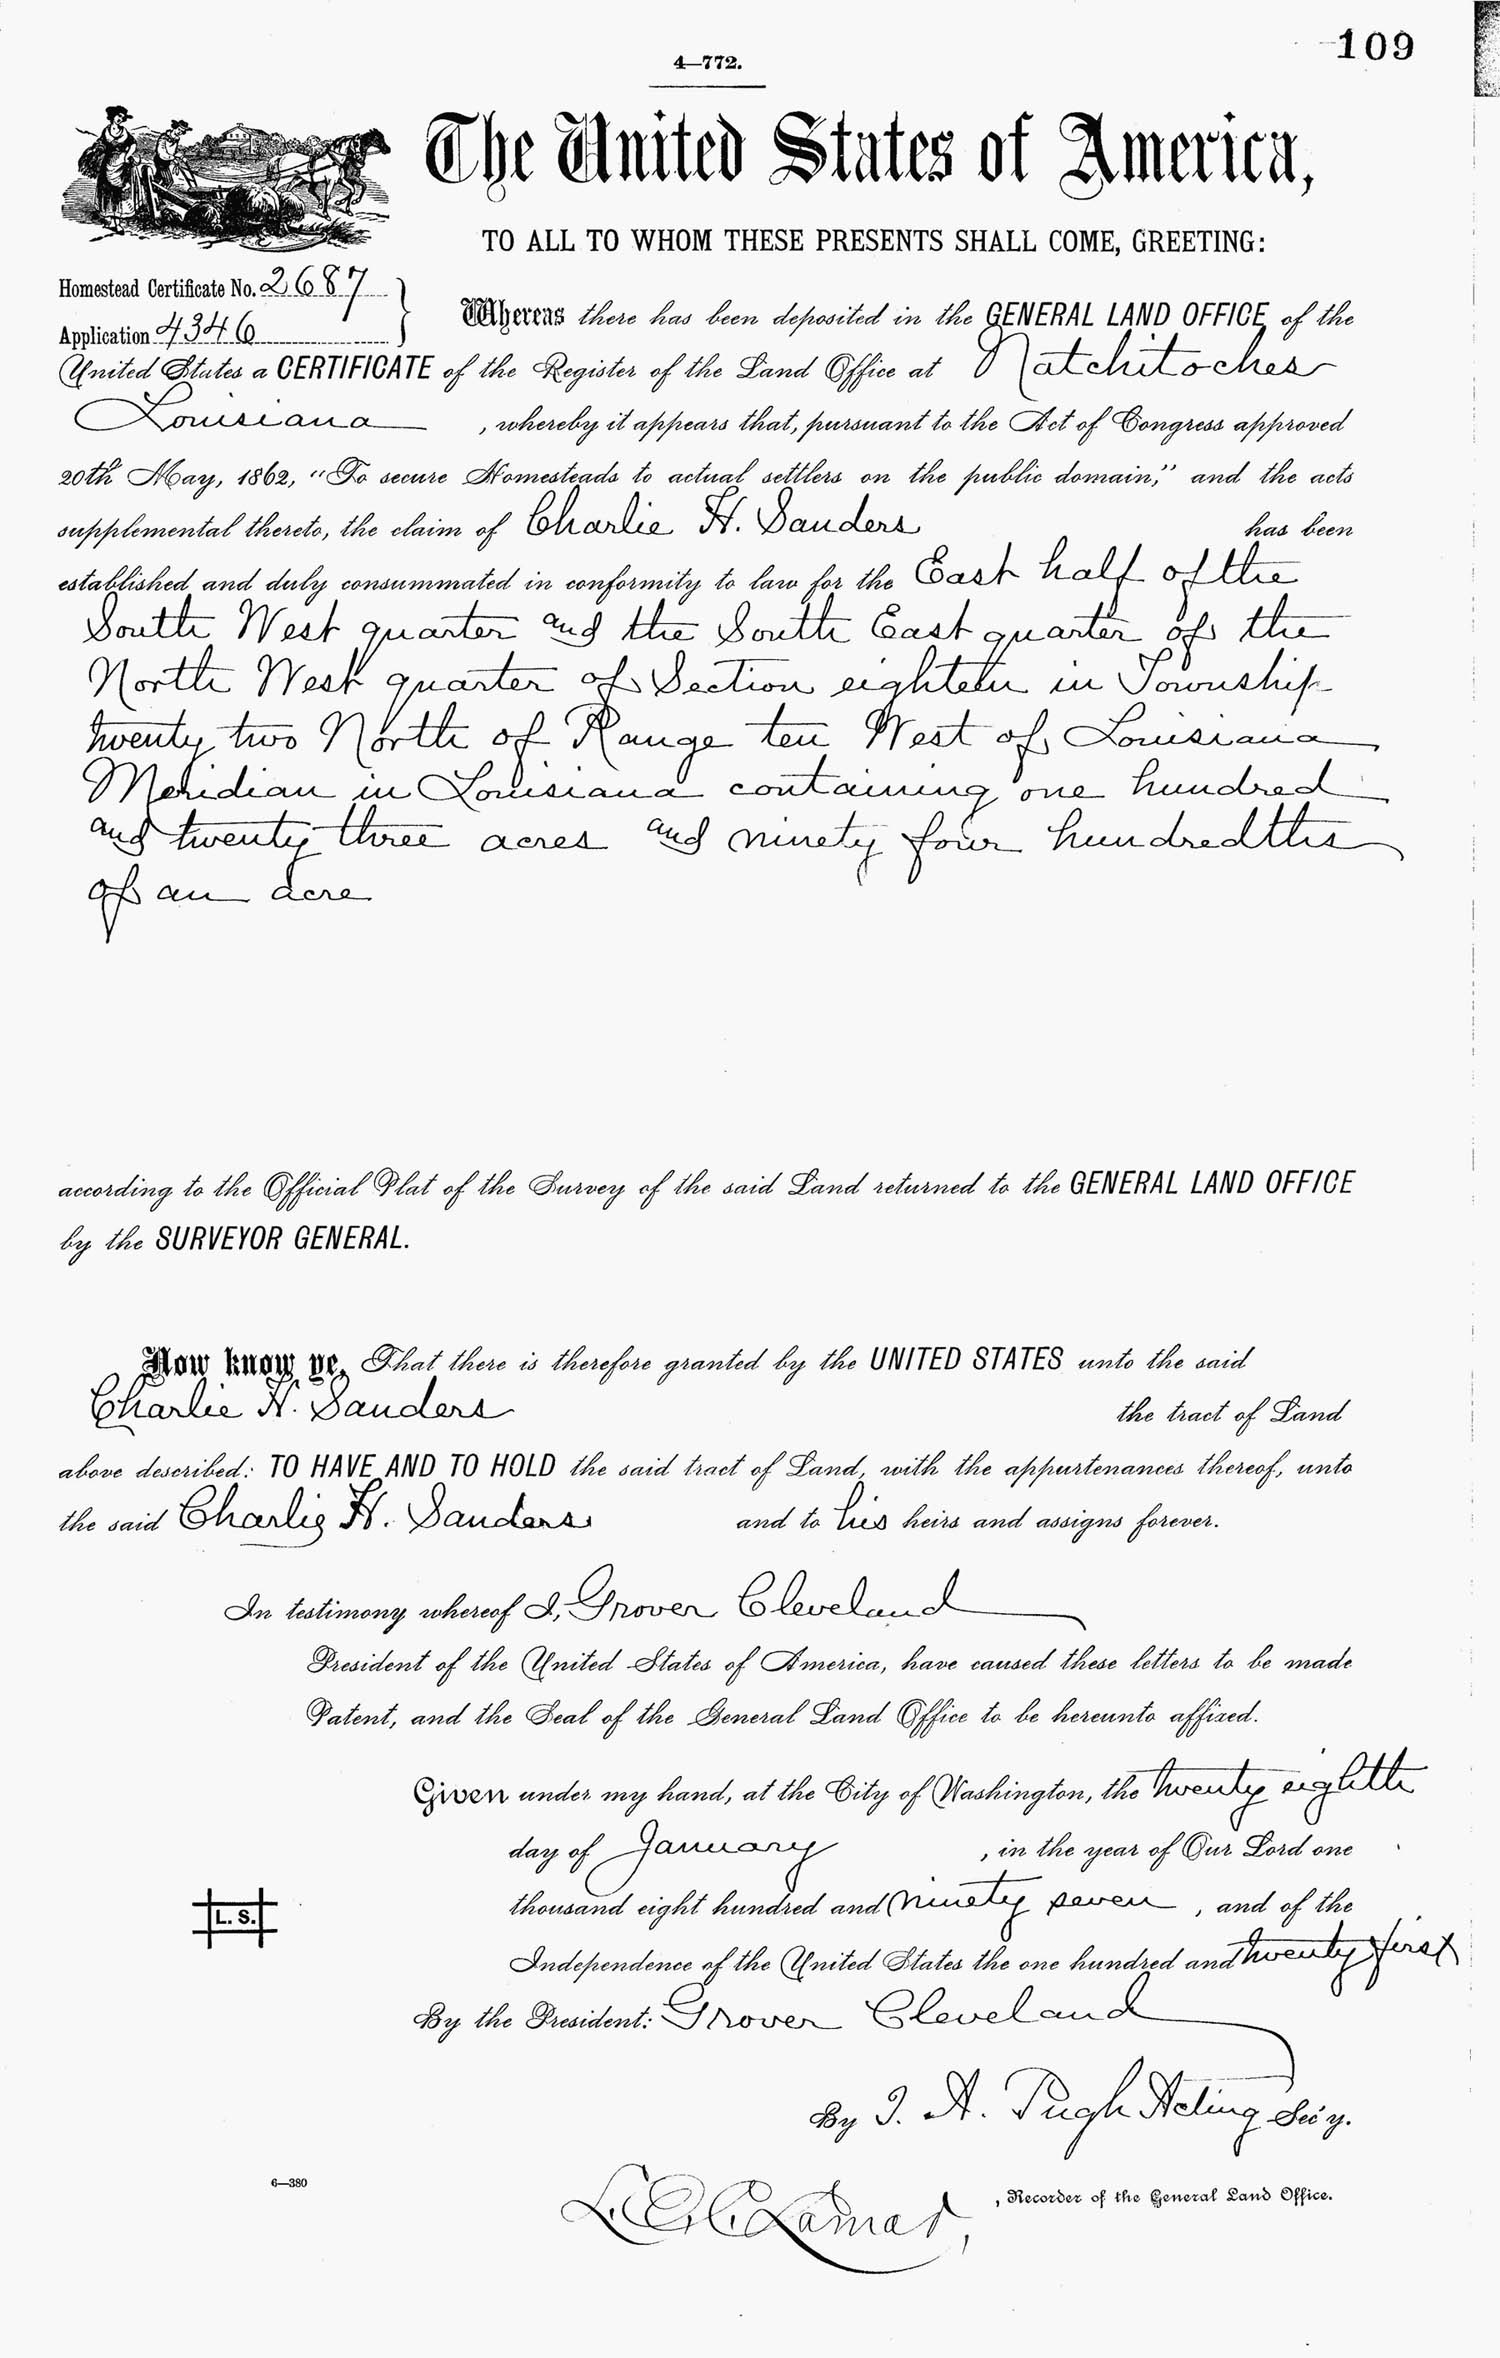 109
4—772.
The United States of America,
TO ALL TO WHOM THESE PRESENTS SHALL COME, GREETING:
Homestead Certificate No. 2687
Application 4346
Whereas there has been deposited in the GENERAL LAND OFFICE of the
United States a CERTIFICATE of the Register of the Land Office at Natchitoches
Louisiana , whereby it appears that, pursuant to the Act of Congress approved
20th May, 1862, "To secure Homesteads to actual settlers on the public domain," and the acts
supplemental thereto, the claim of Charlie H. Sanders has been
established and duly consummated in conformity to law for the East half of the
South West quarter and the South East quarter of the
North West quarter of Section eighteen in Township
twenty two North of Range ten West of Louisiana
Meridian in Louisiana containing one hundred
and twenty three acres and ninety four hundredths
of an acre
according to the Official Plat of the Survey of the said Land returned to the GENERAL LAND OFFICE
by the SURVEYOR GENERAL.
Now know ye, That there is therefore granted by the UNITED STATES unto the said
Charlie H. Sanders the tract of Land
above described: TO HAVE AND TO HOLD the said tract of Land, with the appurtenances thereof, unto
the said Charlie H. Sanders and to his heirs and assigns forever.
In testimony whereof I, Grover Cleveland
President of the United States of America, have caused these letters to be made
Patent, and the Seal of the General Land Office to be hereunto affixed.
Given under my hand, at the City of Washington, the twenty eighth
day of January , in the year of Our Lord one
thousand eight hundred and ninety seven , and of the
L. S.
Independence of the United States the one hundred and twenty first
By the President: Grover Cleveland
By I. A. Pugh Acting Sec'y.
6—380
L Q C Lamar, , Recorder of the General Land Office.